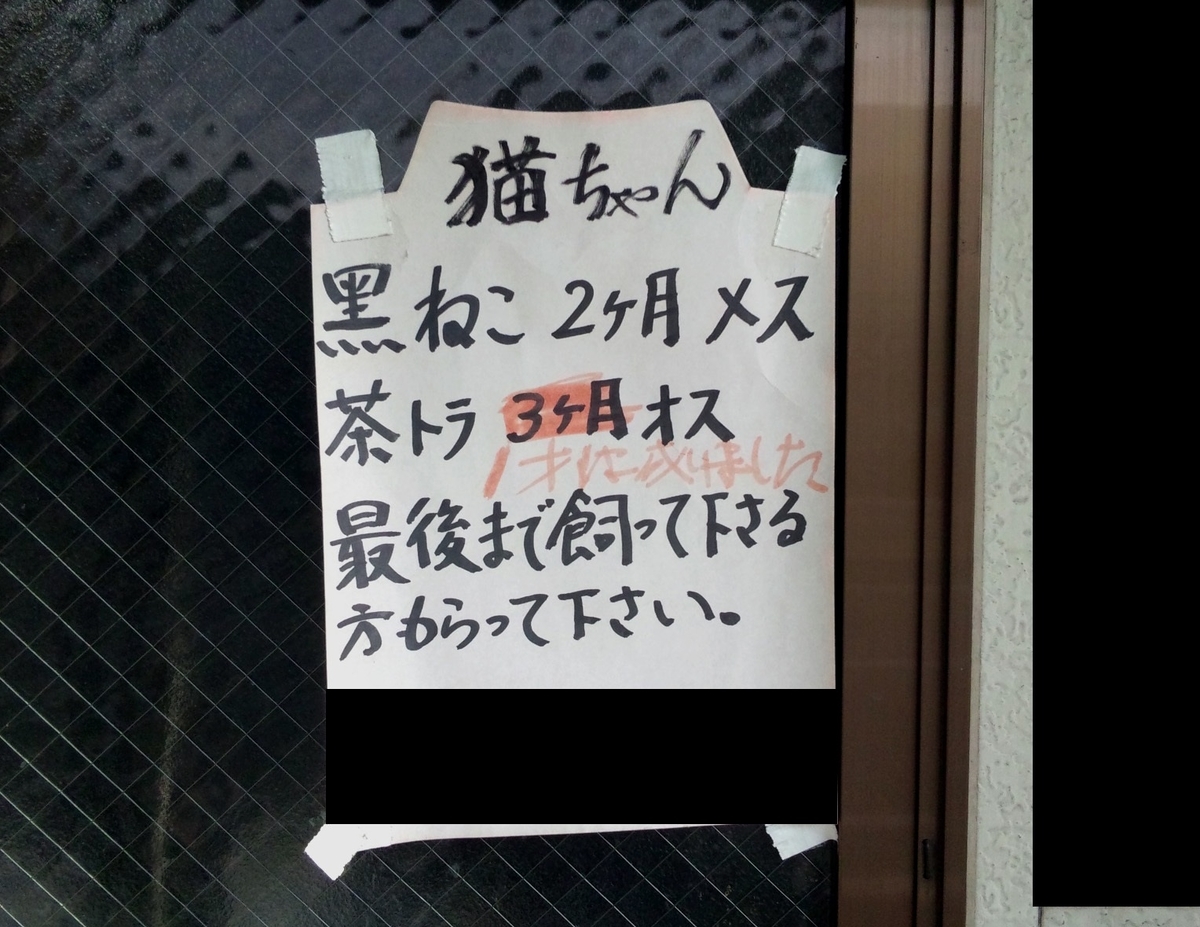 猫ちゃん
黒ねこ 2ヶ月 メス
茶トラ 3ヶ月 オス
1才に成りました
最後まで飼って下さる
方もらって下さい。